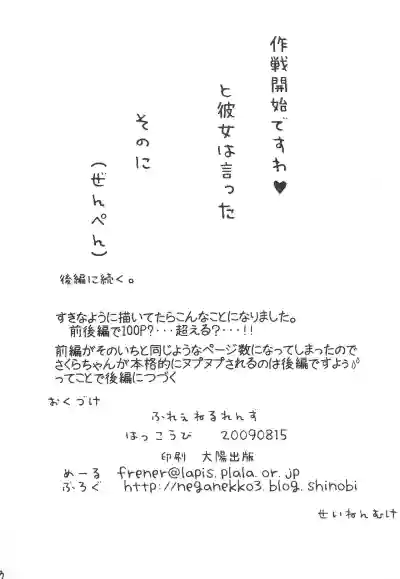 作戦開始ですわ♥
と彼女は言った
そのに
(ぜんぺん)
後編に続く。
すきなように描いてたらこんなことになりました。
前後編で100P?・・・超える?・・・!!
前編がそのいちと同じようなページ数になってしまったので
さくらちゃんが本格的にヌプヌプされるのは後編ですよぅ
ってことで後編につづく
おくづけ
ふれぇねるれんす
はっこうび 20090815
印刷 大陽出版
めーる frener@lapis.plala.or.jp
ぶろぐ http://neganekko3.blog.shinobi
せいねんむけ